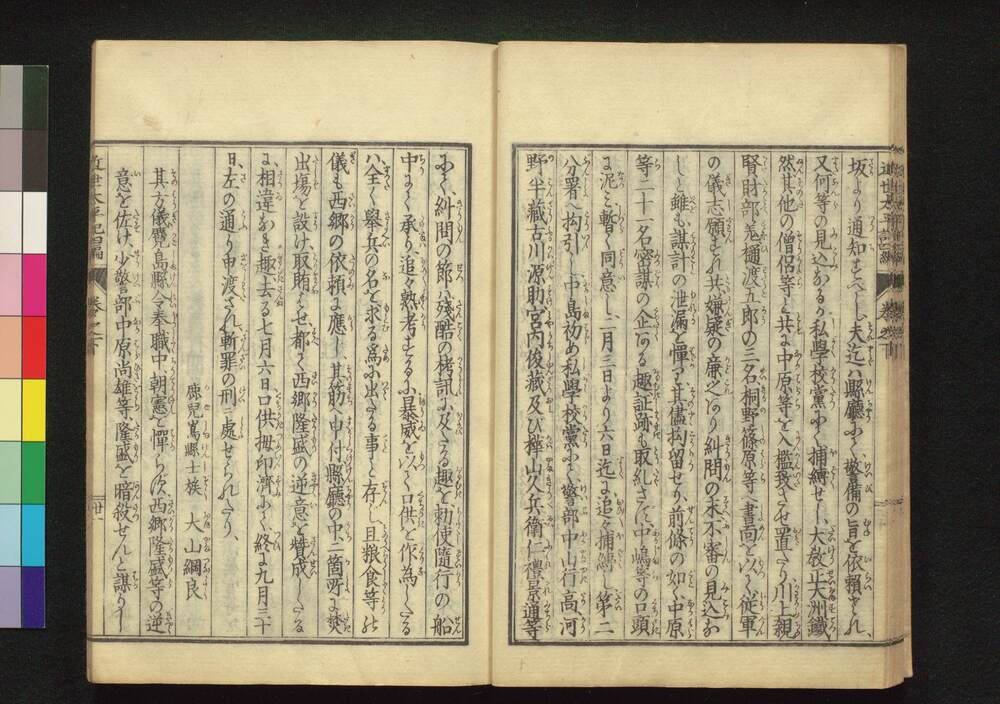 坂より通知すべし夫迄ハ縣廳にて警備の旨を依頼され、
又何等の見込あるか私學校黨にて捕縛せし、大教正大洲鐵
然其他の僧侶等と共に中原等を入檻致させ置たり川上親
賢財部羗樋渡五郎の三名桐野篠原等へ書面を以て従軍
の儀志願すれ共嫌疑の廉之あり糾問の末不審の見込な
しと雖も謀計の泄漏を憚り其儘拘留せり、前條の如く中原
等二十一名密謀の企ある趣証跡も取糺さず、中嶋等の口頭
に泥ミ暫く同意し、二月三日より六日迄に追々捕縛し第二
分署へ拘引し中島初め私學校黨にて警部中山行高河
野半藏古川源助宮内俊藏及び樺山久兵衛仁禮景通等
にて、糾問の節ハ殘酷の栲訊に及たる趣を勅使隨行の船
中にて承り追々熟考するに暴威を以て口供を作為したる
ハ全く擧兵の名を求る為に出たる事と存し且粮食等の
儀も西郷の依頼に應し、其筋へ申付縣廳の中二箇所に焚
出塲を設け、取賄はせ都て西郷隆盛の逆意を賛成したる
に、相違なき趣去る七月六日口供拇印濟にて、終に九月三十
日、左の通り申渡され斬罪の刑に處せられたり、
鹿兒嶌縣士族 大山綱良
其方儀鹿兒島縣令奉職中朝憲を憚らず西郷隆盛等の逆
意を佐け、少警部中原尚雄等隆盛を暗殺せんと謀りし
近世太平記 二編 卷之下 廿一